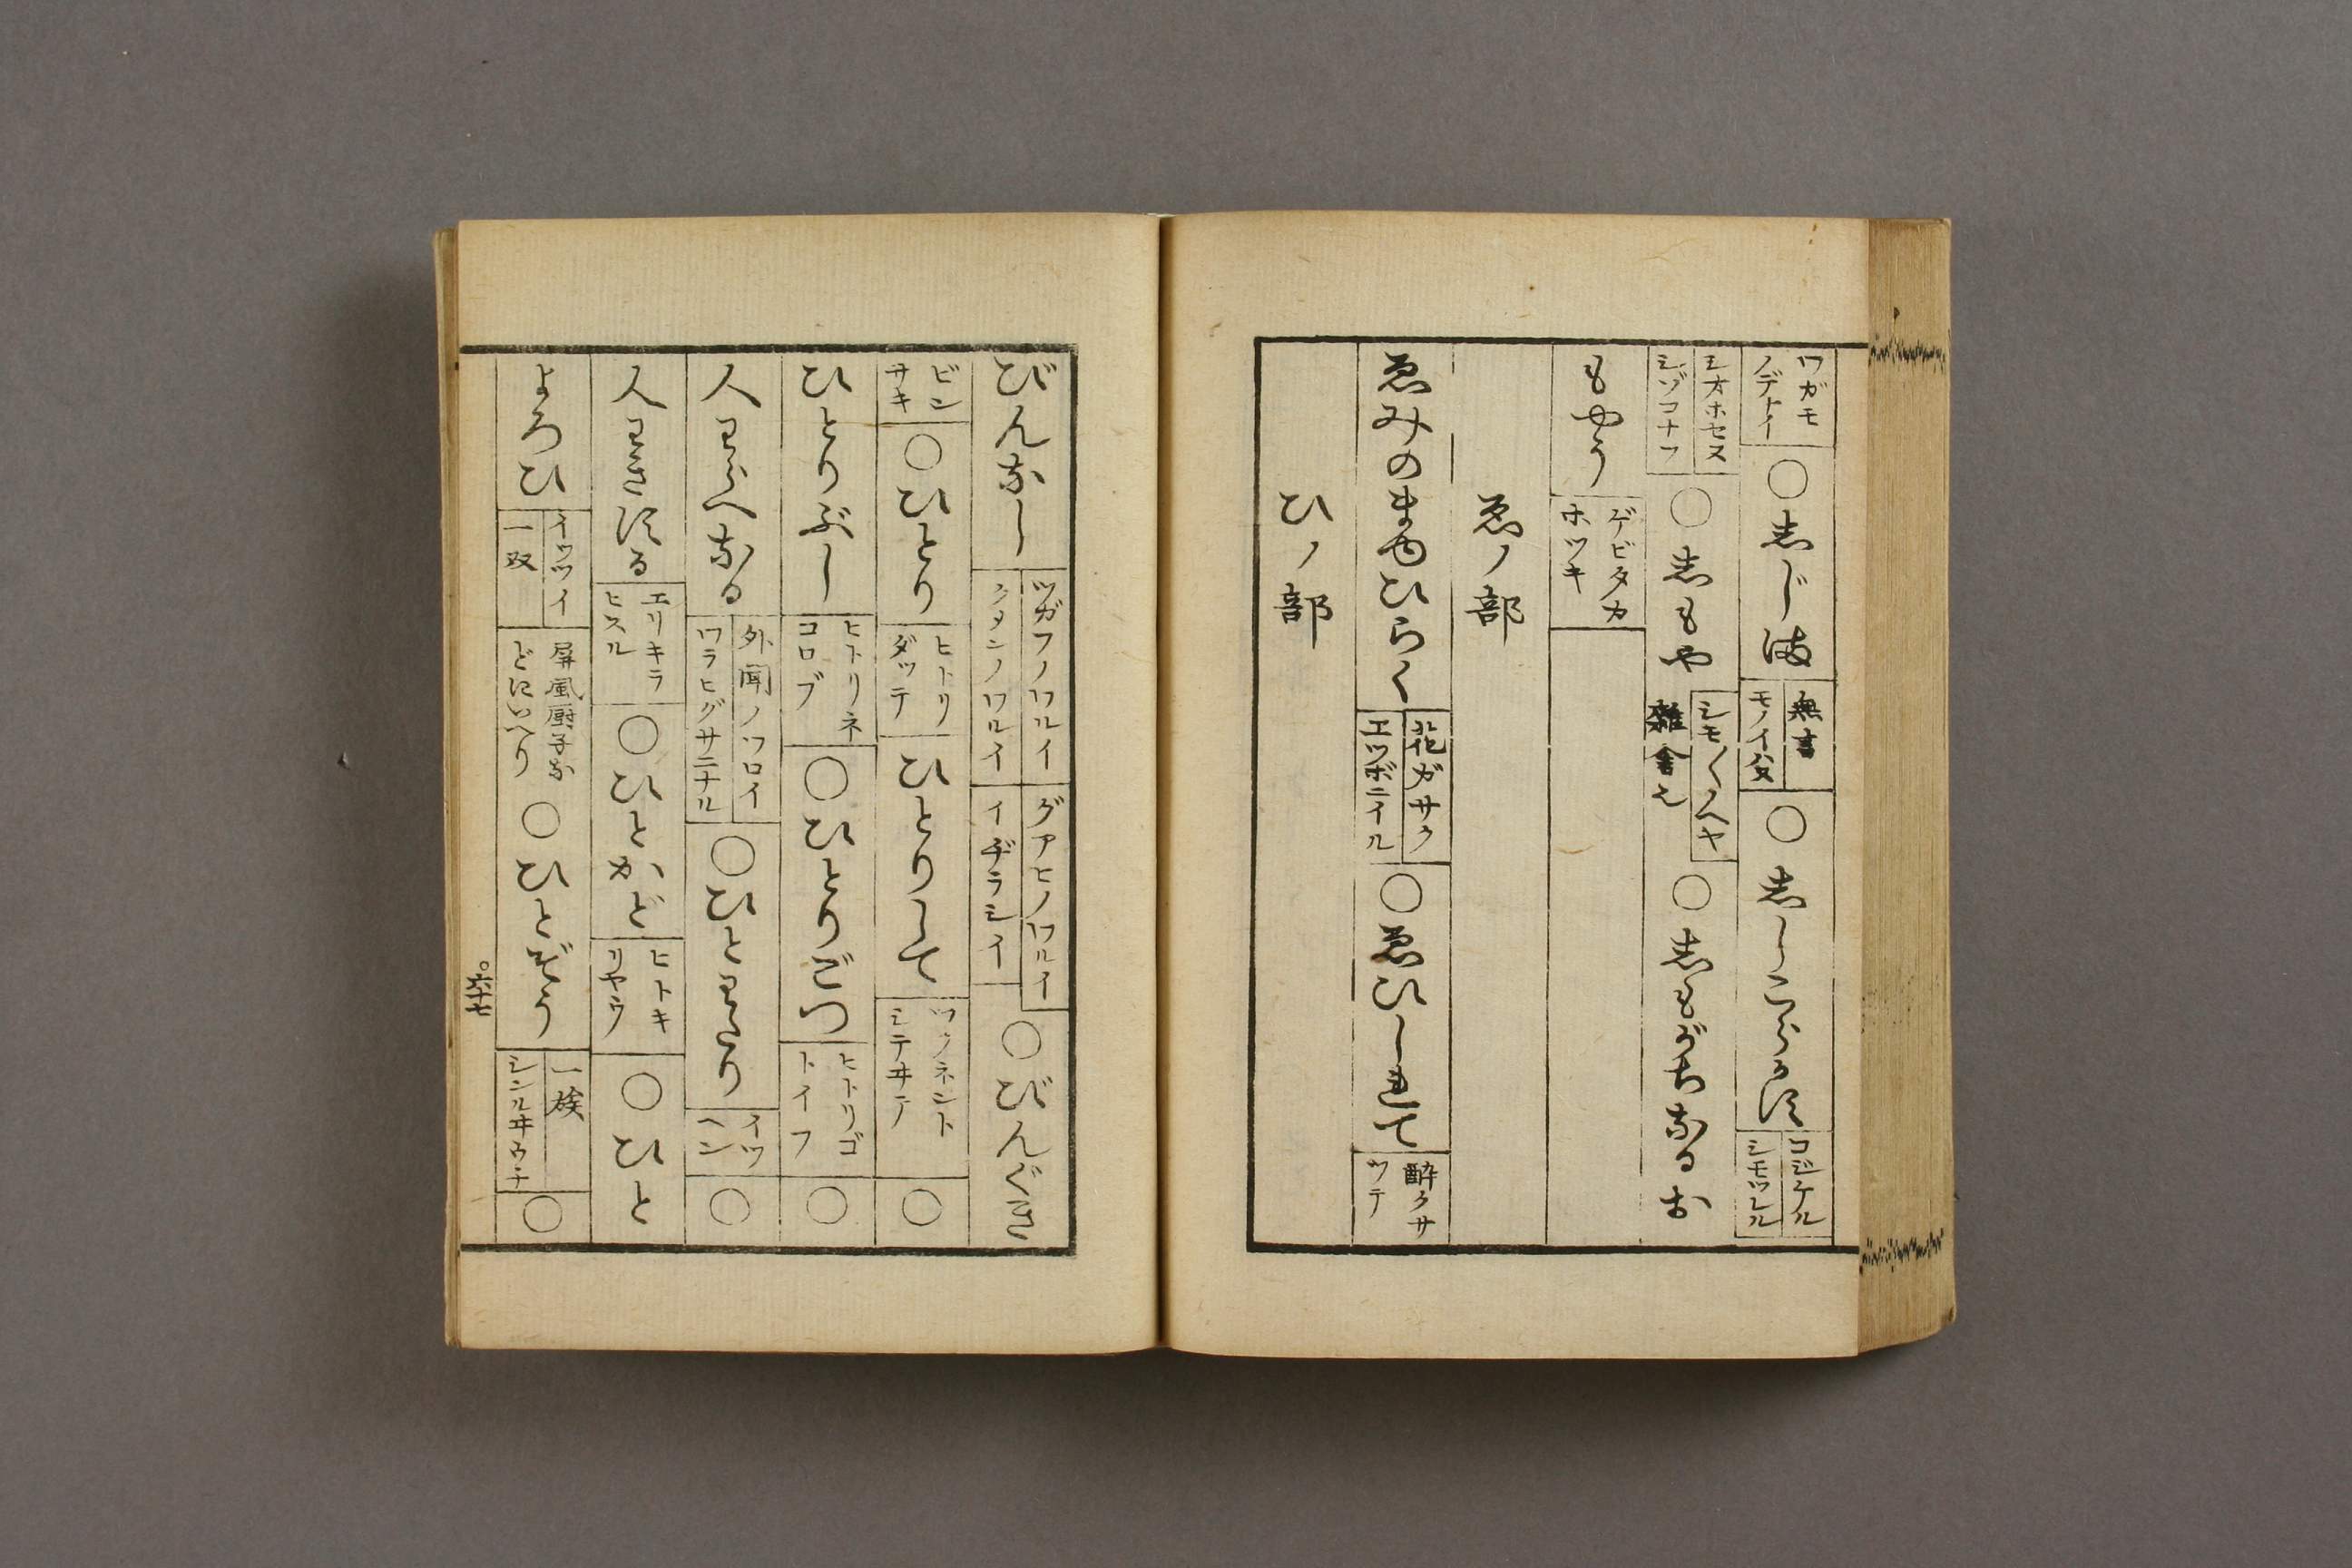 ワガモ
ノデナイ
○志じま
無言
モノイハヌ
○志しこらかす
コジケル
シモツレル
シオホセヌ
シゾコナフ
○志もや
シモ〱ノヘヤ
雑舎也
○志もがちなるお
もやう
ゲビタカ
ホツキ
ゑノ部
ゑみのまゆひらく
花ガサク
エツボニイル
○ゑひしれて
酔クサ
ツテ
ひノ部
びんなし
ツガフノワルイ
クタンノワルイ
グアヒノワルイ
イヂラシイ
○びんぐき
ビン
サキ
○ひとり
ヒトリ
ダツテ
ひとりして
ツクネント
シテヰテ
○
ひとりぶし
ヒトリネ
コロブ
○ひとりごつ
ヒトリゴ
トイフ
○
人わらへなる
外聞ノワロイ
ワラヒグサニナル
○ひとわたり
イツ
ヘン
○
人わきする
エリキラ
ヒスル
○ひとかど
ヒトキ
リヤウ
○ひと
よろひ
イツツイ
一双
屏風厨子な
どにいへり
○ひとぞう
一族
シンルヰウチ
○
○六十七